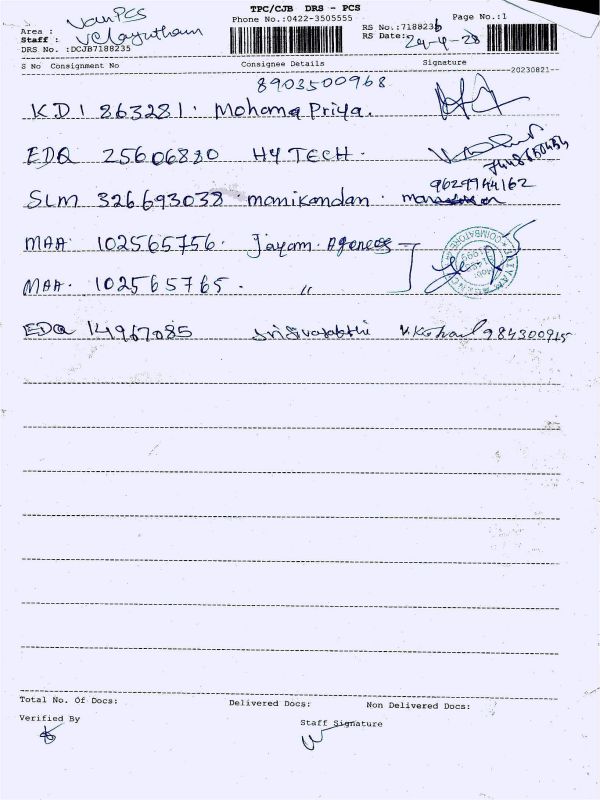 TPC/CJB DRS - PCS
Phone No.:0422-3505555
Page No.:1
Area : Van PCS
Staff : Velayutham
DRS No. :DCJB7188235
RS No.:7188236
RS Date: 29-4-28
S No Consignment No Consignee Details Signature
20230821
8903500968
KDI 863281. Mohama Priya.
EDQ 25606880 HY TECH.
SLM 326693038 manikandan
9629944162
MAA. 102565756. Jayam Agences
MAA. 102565765. "
EDQ 14967085 984300915
Total No. Of Docs: Delivered Docs: Non Delivered Docs:
Verified By
Staff Signature